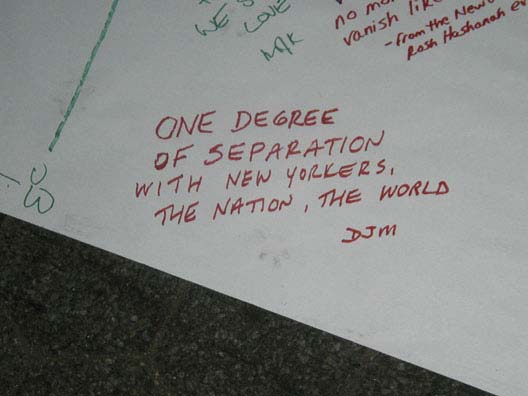 WE
LOVE
no mo
vanish like
- from the New
Rosh Hashanah e
ONE DEGREE
OF SEPARATION
WITH NEW YORKERS,
THE NATION, THE WORLD
DJM